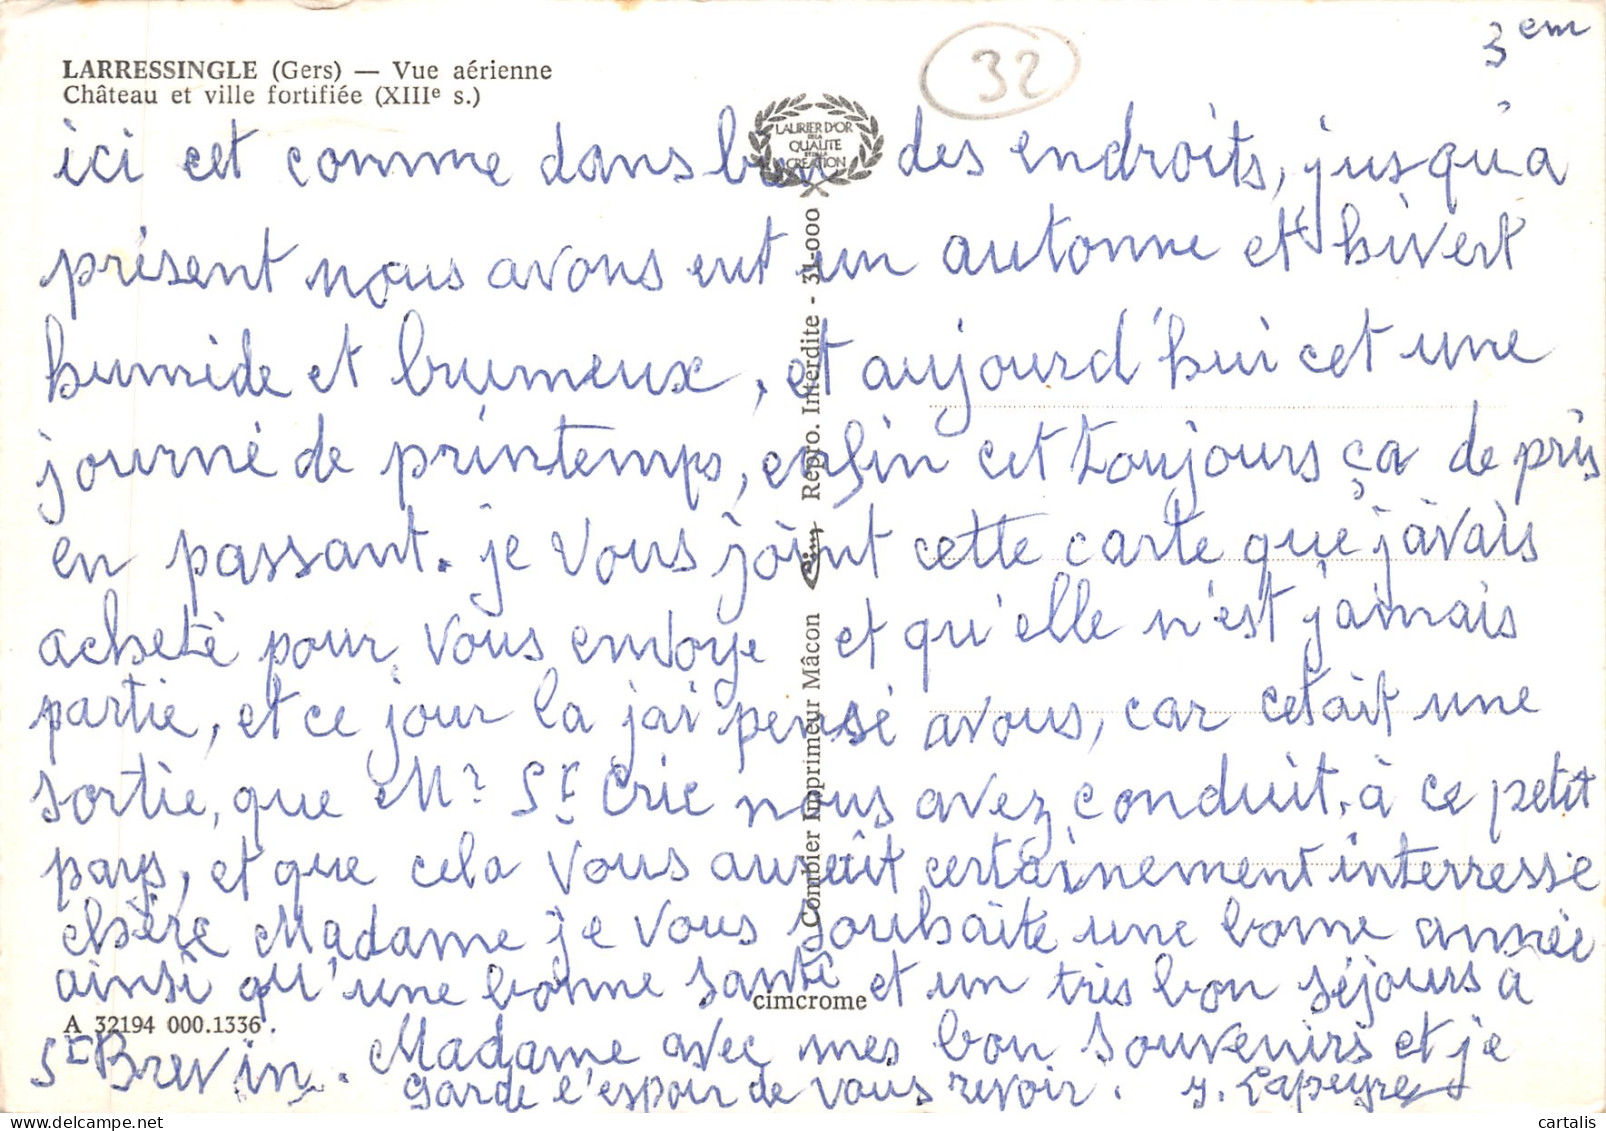 3em
32
LARRESSINGLE (Gers) — Vue aérienne
Château et ville fortifiée (XIIIe s.)
LAURIER D'OR
DE LA
QUALITE
ET DE LA
CREATION
ici cet comme dans bien des endroits, jusqu'a
présent nous avons eut un automne et hivert
humide et brumeux, et aujourd'hui cet une
journé de printemps, enfin cet toujours ça de pris
en passant. je vous joint cette carte que j'avais
acheté pour vous envoye et qu'elle n'est jamais
partie, et ce jour la j'ai pensé avous, car cetait une
sortie, que Mr St Cric nous avez conduit, à ce petit
pays, et que cela vous aurait certainement interresse
chère Madame je vous souhaite une bonne année
ainsi qu'une bonne santé et un très bon séjours à
St Brevin. Madame avec mes bon souvenirs et je
garde l'espoir de vous revoir. J. Lapeyre
Combier Imprimeur Mâcon Cim Repro. Interdite - 31-000
cimcrome
A 32194 000.1336
cartalis